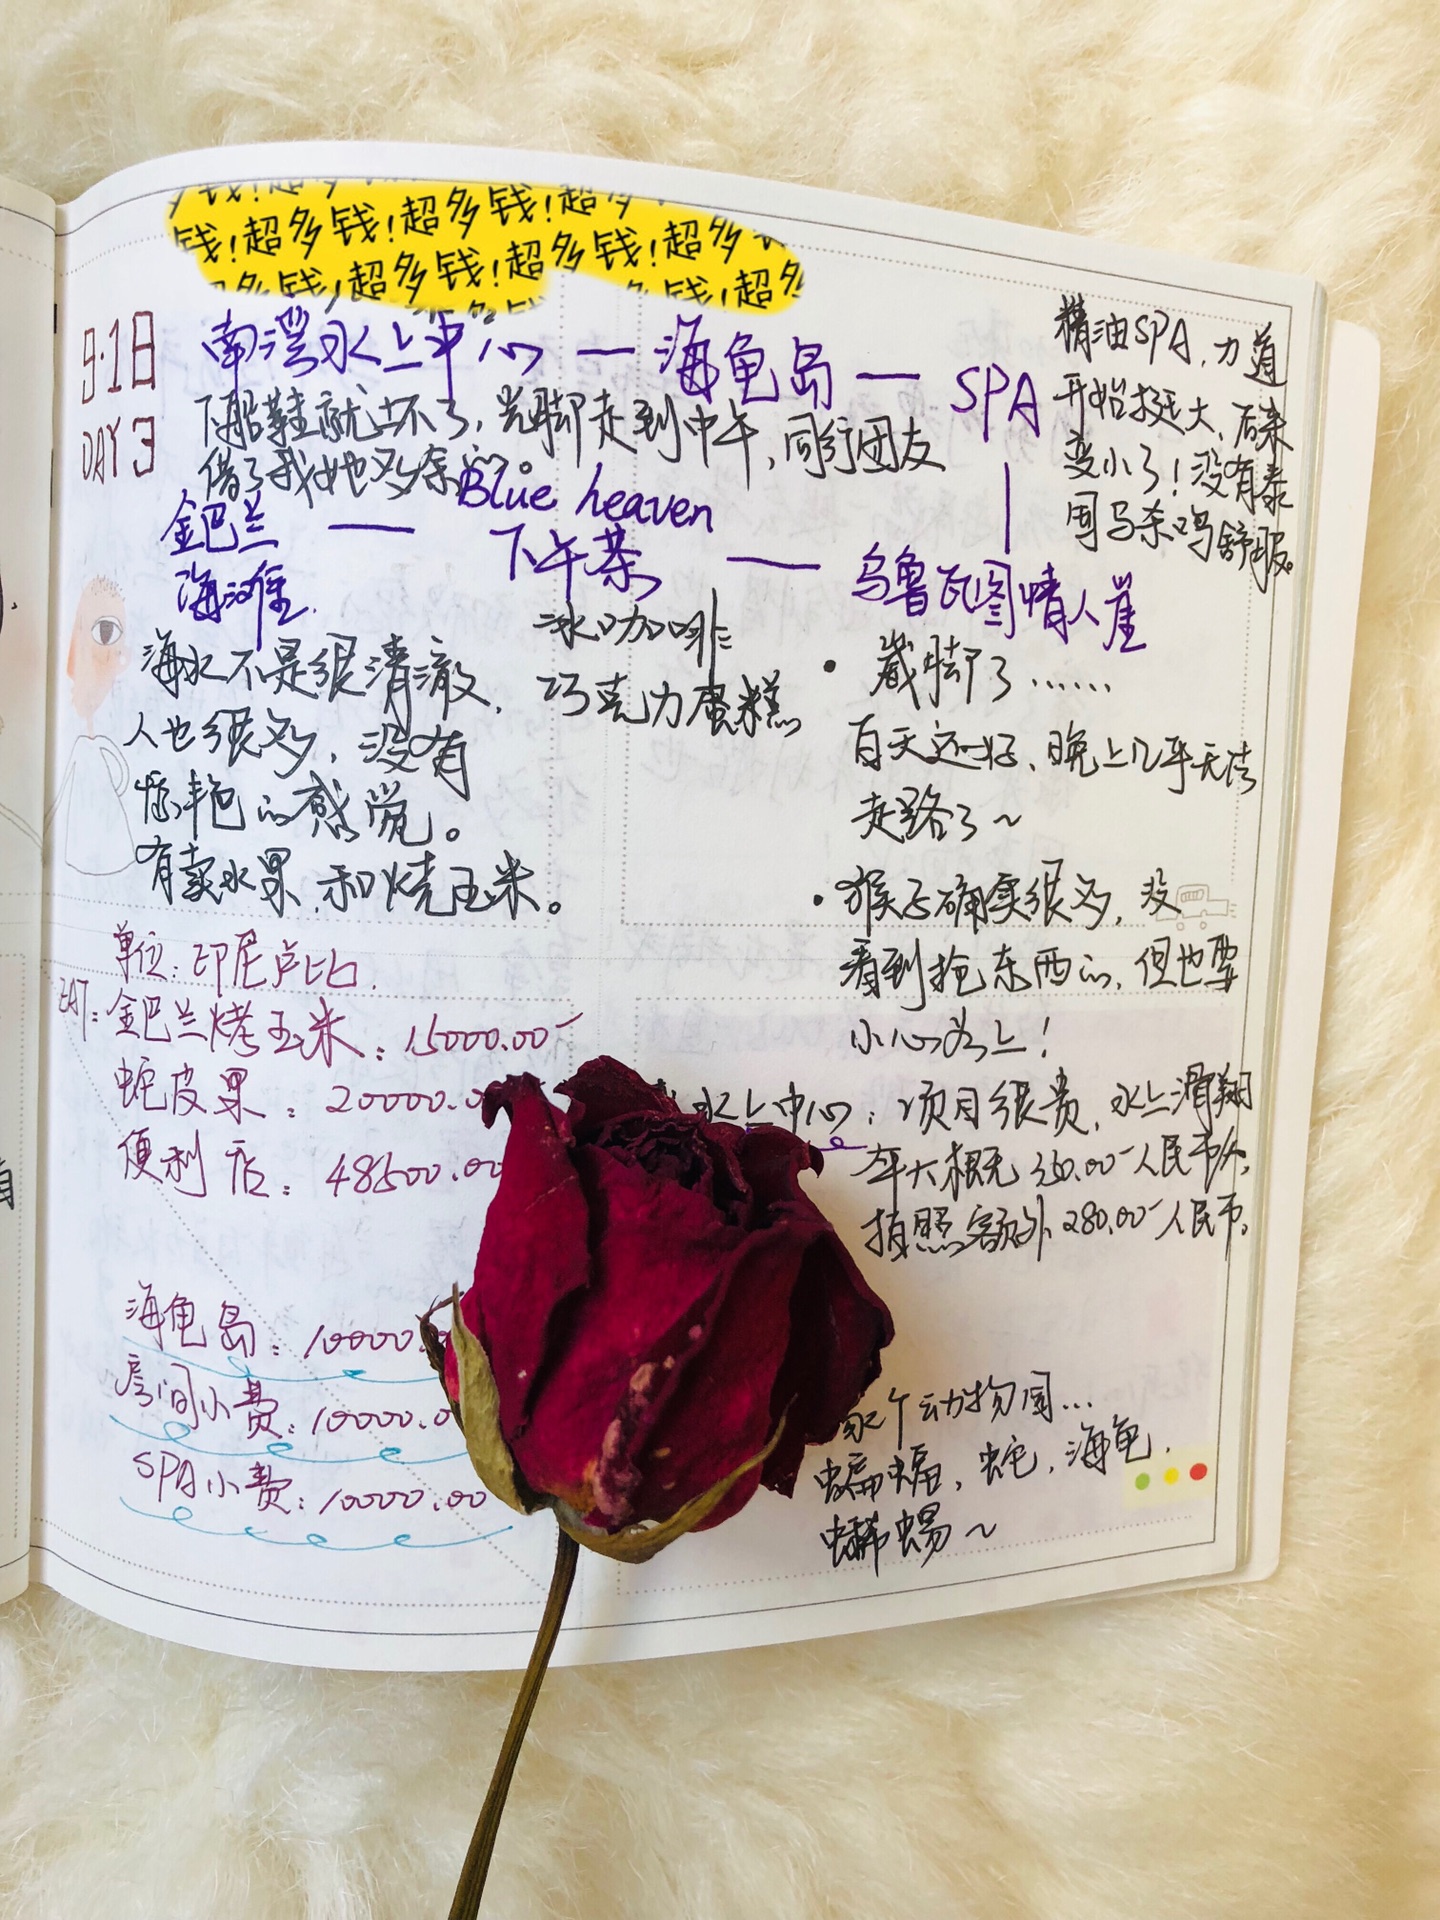 钱!超多
钱!超多钱!超多钱!超多
钱!超多钱!超多钱!超多
多钱!超多钱!超多钱!超多
9.1日
DAY 3
南湾水上中心 — 海龟岛 — SPA
下船鞋就坏了,光脚走到中午,同行团友
借了我她多余的。
精油SPA,力道
开始挺大,后来
变小了!没有泰
国马杀鸡舒服。
金巴兰
海滩
Blue heaven
下午茶
乌鲁瓦图情人崖
冰咖啡
巧克力蛋糕
海水不是很清澈,
人也很多,没有
惊艳的感觉。
有卖水果,和烧玉米。
• 崴脚了……
白天还好,晚上几乎无法
走路了~
• 猴子确实很多,没
看到抢东西的,但也要
小心为上!
单位:印尼卢比
EAT:金巴兰烤玉米:15000.00
蛇皮果:20000.0
便利店:48500.00
海龟岛:10000.
房间小费:10000.0
SPA小费:10000.00
水上中心:项目很贵,水上滑翔
大概 350.00 人民币
拍照额外280.00人民币。
个动物园...
蝙蝠,蛇,海龟,
蜥蜴~